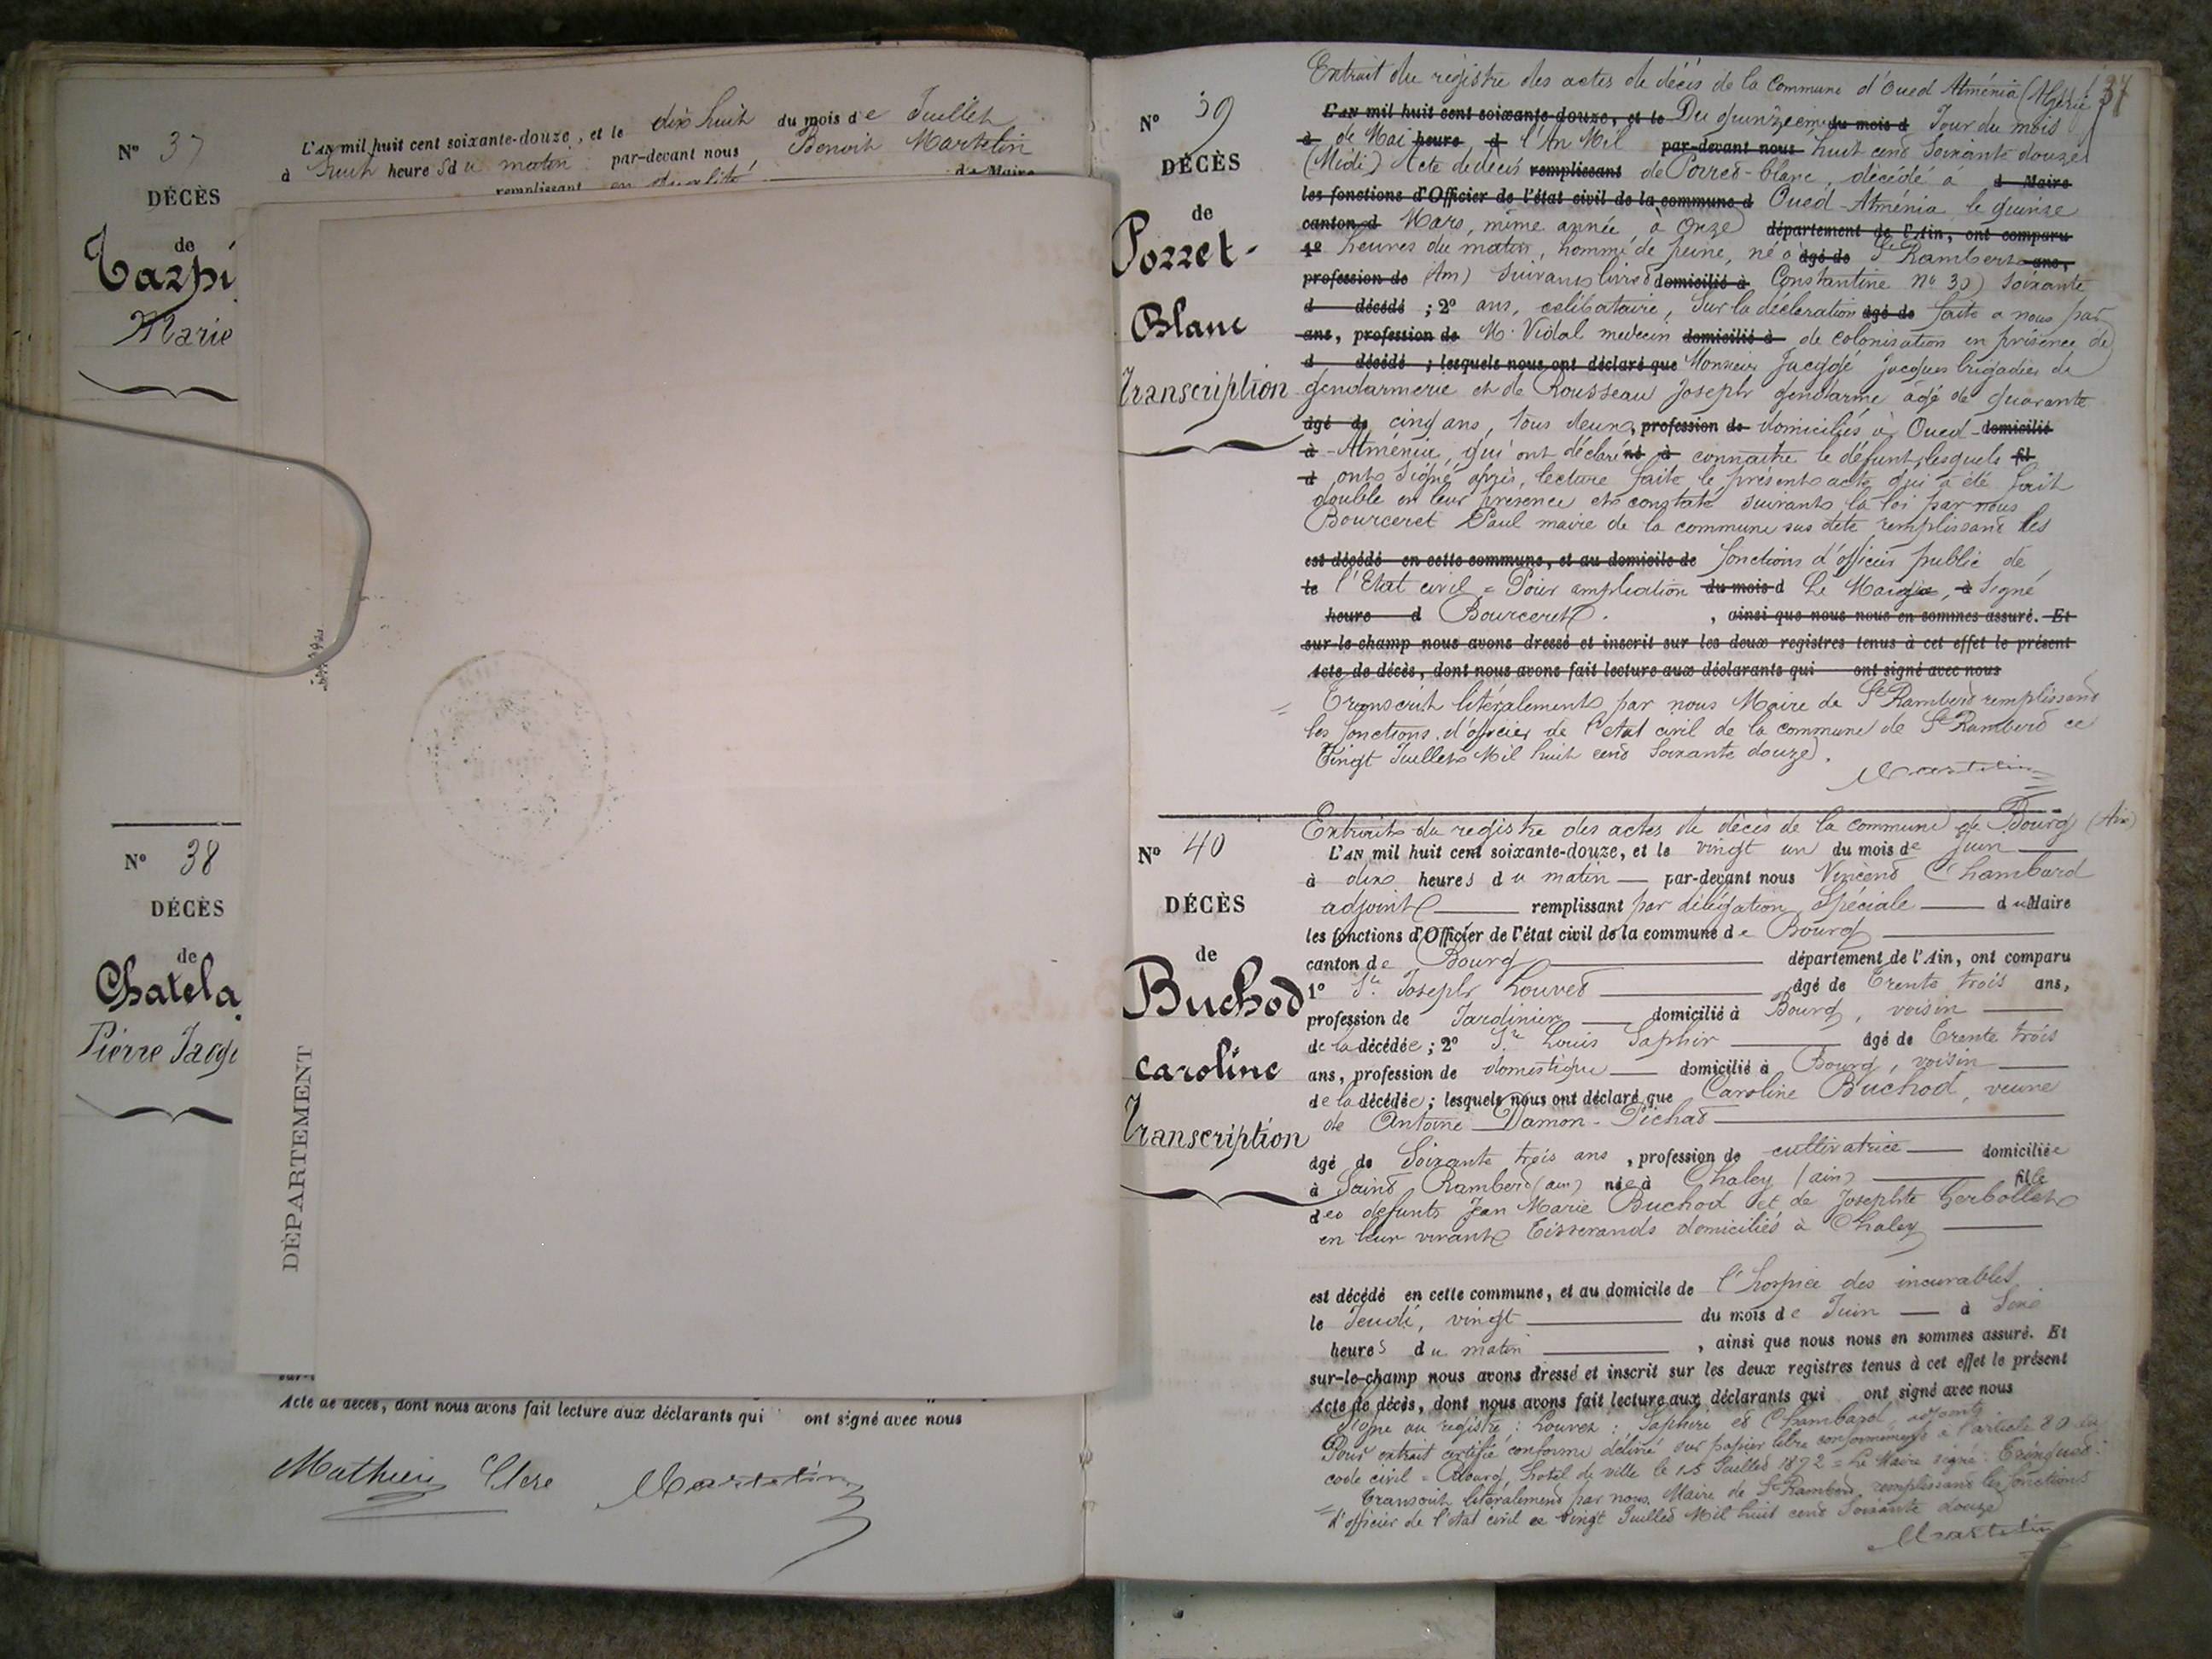 N° 37
DÉCÈS
de
Tarpi
Marie
L'AN mil huit cent soixante-douze, et le dix huit du mois de Juillet
à huit heures du matin par-devant nous Benoit Martelin
remplissant en qualité du Maire
N° 38
DÉCÈS
de
Chatela
Pierre Jacq
DÉPARTEMENT
Acte de décès, dont nous avons fait lecture aux déclarants qui ont signé avec nous
Mathieu Clere Martelin
37
Extrait du registre des actes de décès de la Commune d'Oued Atménia (Algérie)
N° 39
DÉCÈS
de
Porret-
Blanc
Transcription
L'AN mil huit cent soixante-douze, et le Du quinzeième du mois d Jour du mois
à de Mai heure d l'An Mil par-devant nous huit cent soixante douze
(Midi) Acte de décès remplissant de Porret-blanc, décédé à d Maire
les fonctions d'Officier de l'état civil de la commune d Oued-Atménia le quinze
canton d Mars, même année, à Onze département de l'Ain, ont comparu
1° heures du matin, homme de peine, né à âgé de St Rambert ans,
profession de (Ain) suivant livret domicilié à Constantine n° 30) soixante
d décédé ; 2° ans, celibataire, Sur la déclaration âgé de faite a nous par
ans, profession de M. Vidal medecin domicilié à de colonisation en présence de
d décédé ; lesquels nous ont déclaré que Monsieur Jacques brigadier de
gendarmerie et de Rousseau Joseph gendarme âgé de quarante
âgé de cinq ans, tous deux, profession de domiciliés à Oued-domicilié
à -Atménia, qui ont déclaré né à connaître le défunt, lesquels fil
d ont signé après, lecture faite le présent acte qui a été fait
double en leur présence et constaté suivant la loi par nous
Bourceret Paul maire de la commune sus dite remplissant les
est décédé en cette commune, et au domicile de fonctions d'officier public de
le l'Etat civil = Pour ampliation du mois d Le Maire, à Signé
heure d Bourceret. , ainsi que nous nous en sommes assuré. Et
sur-le-champ nous avons dressé et inscrit sur les deux registres tenus à cet effet le présent
Acte de décès, dont nous avons fait lecture aux déclarants qui ont signé avec nous
Transcrit litéralement par nous Maire de St Rambert remplissant
les fonctions d'officier de l'état civil de la commune de St Rambert ce
Vingt Juillet Mil huit cent soixante douze.
Martelin
Extrait du registre des actes de décès de la commune de Bourg (Ain)
N° 40
DÉCÈS
de
Buchod
Caroline
Transcription
L'AN mil huit cent soixante-douze, et le vingt un du mois de Juin
à dix heures du matin par-devant nous Vincent Chambard
adjoint remplissant par délégation Spéciale du Maire
les fonctions d'Officier de l'état civil de la commune de Bourg
canton de Bourg département de l'Ain, ont comparu
1° Sr Joseph Louvet âgé de Trente trois ans,
profession de Jardinier domicilié à Bourg, voisin
de la décédée ; 2° Sr Louis Saphir âgé de Trente trois
ans, profession de domestique domicilié à Bourg, voisin
de la décédée ; lesquels nous ont déclaré que Caroline Buchod, veuve
de Antoine Damon-Pichat
âgé de Soixante trois ans, profession de cultivatrice domiciliée
à Saint Rambert (ain) née à Chaley (ain) fille
des defunts Jean Marie Buchod et de Josephte Gerbollet
en leur vivant Tisserands domiciliés à Chaley
est décédé en cette commune, et au domicile de l'hospice des incurables
le Jeudi, vingt du mois de Juin à Six
heures du matin , ainsi que nous nous en sommes assuré. Et
sur-le-champ nous avons dressé et inscrit sur les deux registres tenus à cet effet le présent
Acte de décès, dont nous avons fait lecture aux déclarants qui ont signé avec nous
Signé au registre : Louvet : Saphir et Chambard, adjoint
Pour extrait certifié conforme délivré sur papier libre conformément à l'article 80 du
code civil = Bourg, hotel de ville le 15 Juillet 1872 = Le Maire signé :
Transcrit litéralement par nous, Maire de St Rambert, remplissant les fonctions
d'officier de l'état civil ce vingt Juillet Mil huit cent Soixante douze
Martelin